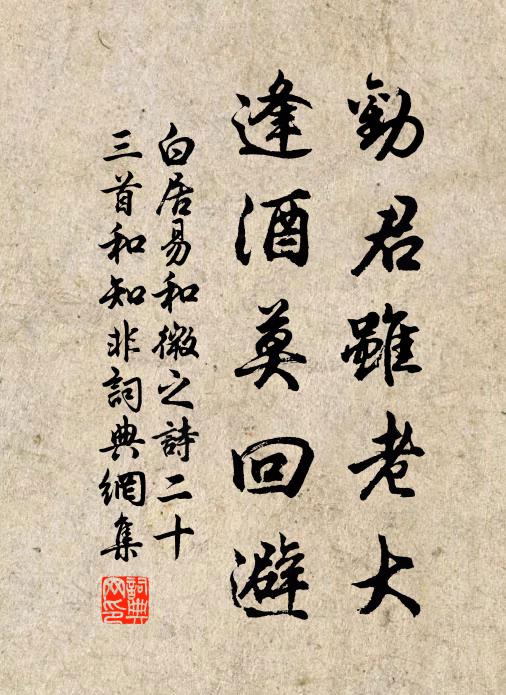 勸君雖老大
逢酒莫回避
白居易和微之詩二十
三首和知非詞典網集
詞典網印